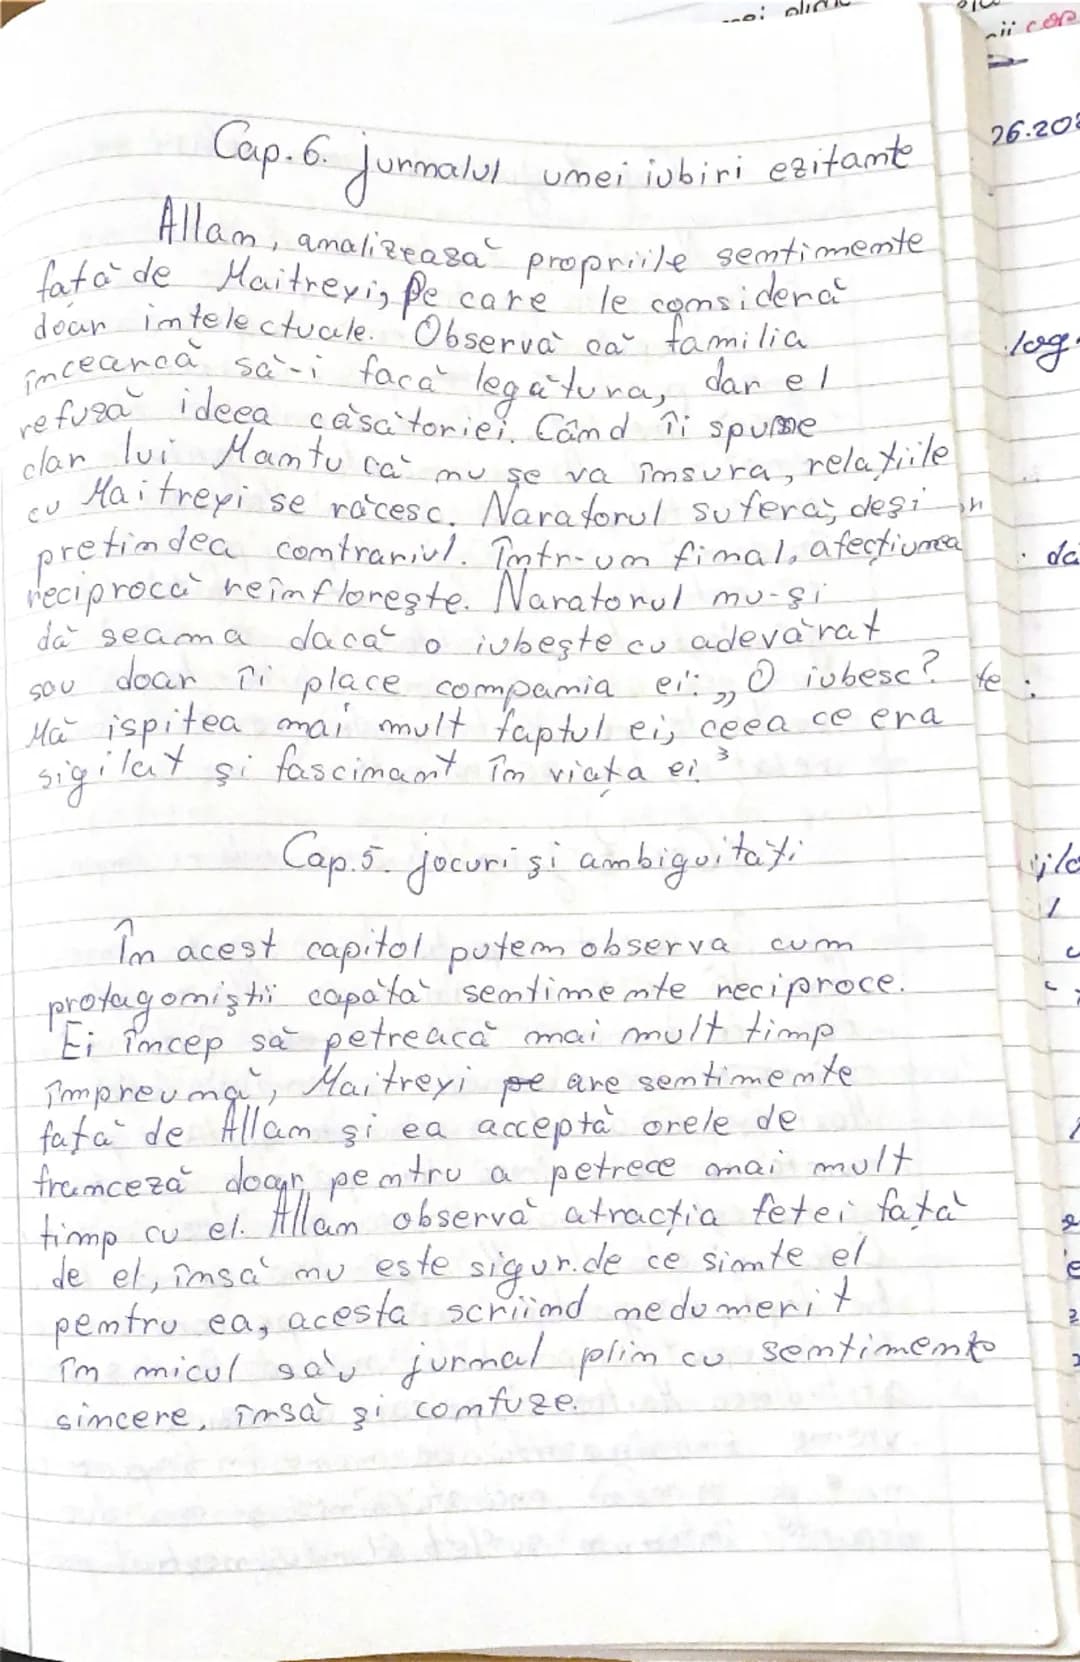 Cap. 6. jurnalul unei iubiri ezitante
Allan, analizează propriile sentimente
față de Maitreyi, pe care le consideră
doar intelectuale. Observă că familia
încearcă să-i facă legătura, dar el
refuză ideea căsătoriei. Când îi spune
clar lui Mantu că nu se va însura, relațiile
cu Maitreyi se răcesc. Naratorul suferă, deși
pretindea contrariul. Într-un final, afecțiunea
reciprocă reînflorește. Naratorul nu-și
dă seama dacă o iubește cu adevărat
sau doar îi place compania ei: „O iubesc?
Mă ispitea mai mult faptul ei, ceea ce era
sigilat și fascinant în viața ei.”
Cap. 5. jocuri și ambiguități
În acest capitol putem observa cum
protagoniștii capătă sentimente reciproce.
Ei încep să petreacă mai mult timp
împreună, Maitreyi are sentimente
față de Allan și ea acceptă orele de
franceză doar pentru a petrece mai mult
timp cu el. Allan observă atracția fetei față
de el, însă nu este sigur de ce simte el
pentru ea, acesta scriind nedumerit
în micul său jurnal plin cu sentimente
sincere, însă și confuze.
26.202
log
da
te :